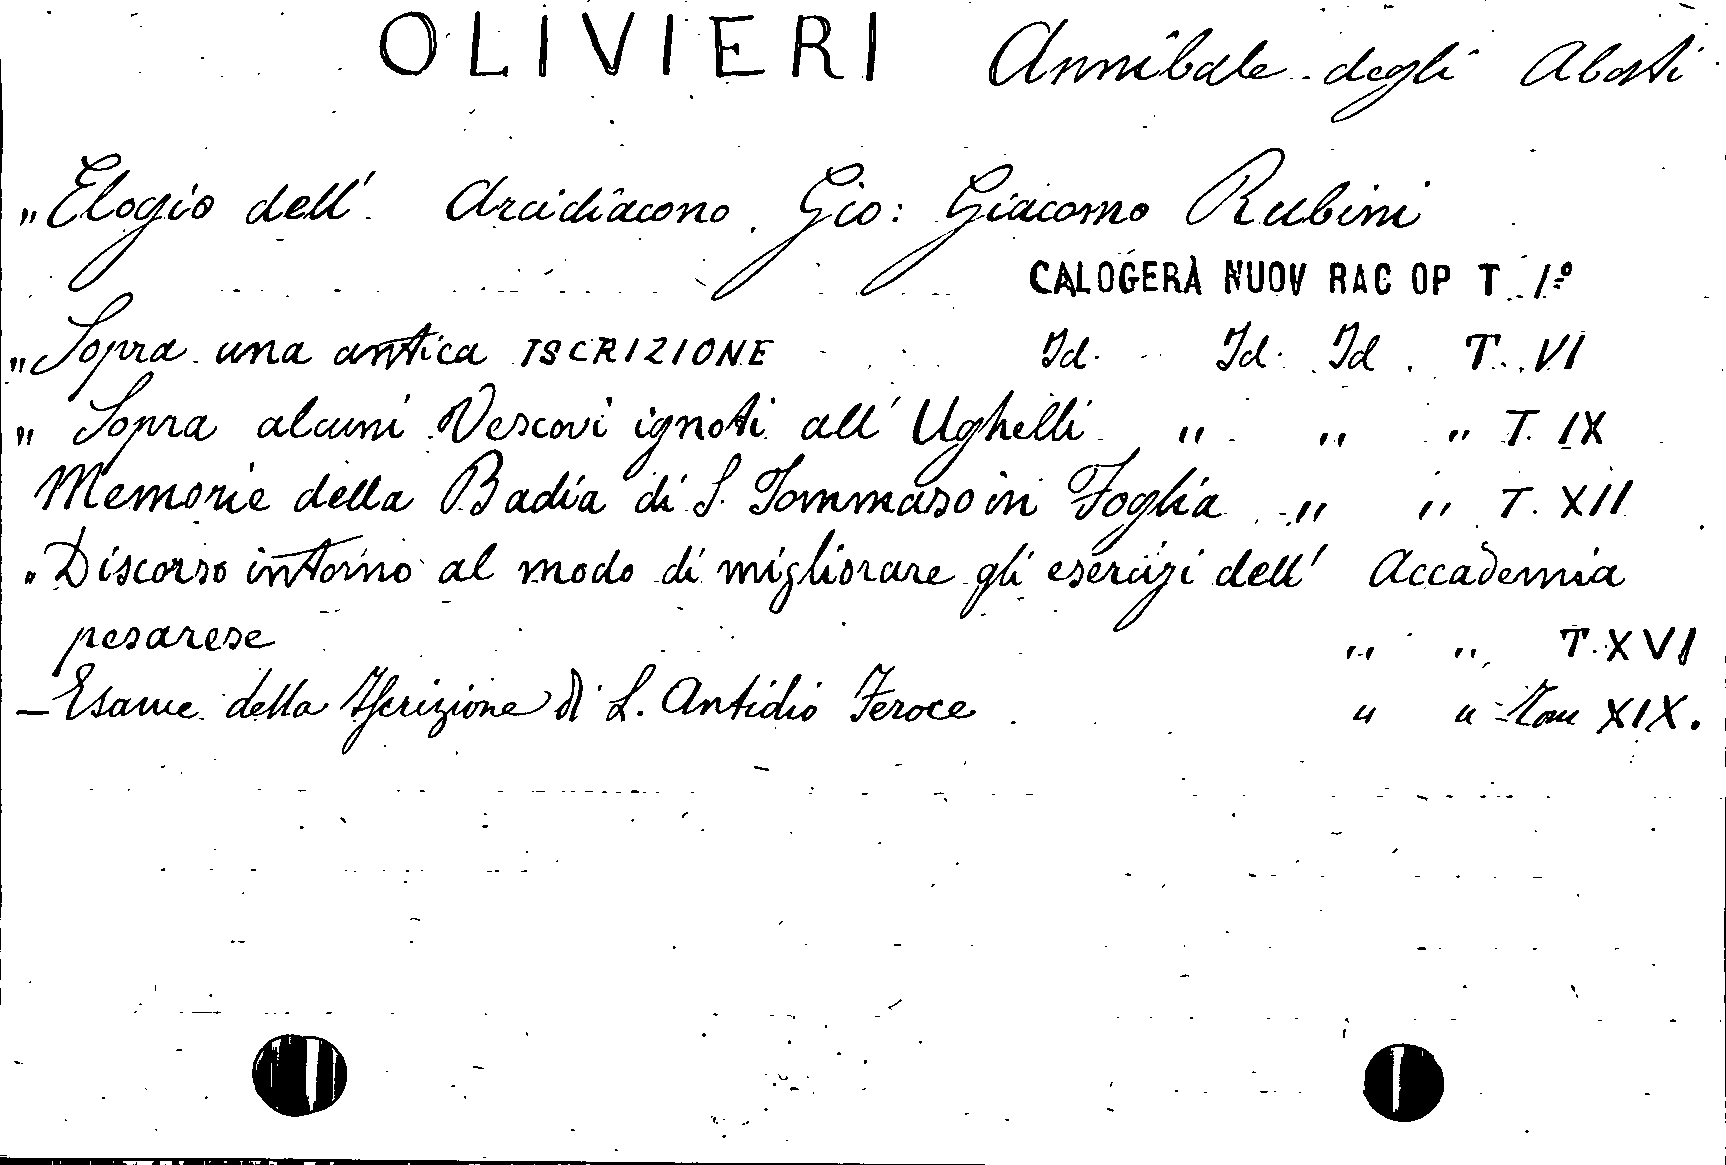 OLIVIERI Annibale degli Abati
„ Elogio dell' Arcidiacono Gio: Giacomo Rubini
CALOGERÀ NUOV RAC OP T I°
„ Sopra una antica ISCRIZIONE Id. Id. Id. T. VI
„ Sopra alcuni Vescovi ignoti all' Ughelli „ „ „ T. IX
Memorie della Badia di S. Tommaso in Foglia „ „ T. XII
„ Discorso intorno al modo di migliorare gli esercizi dell' Accademia
pesarese „ „ T. XVI
— Esame della Iscrizione di L. Antidio Feroce „ „ Tom XIX.